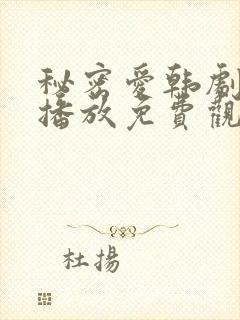 秘密愛韩劇
播放免費觀
杜揚